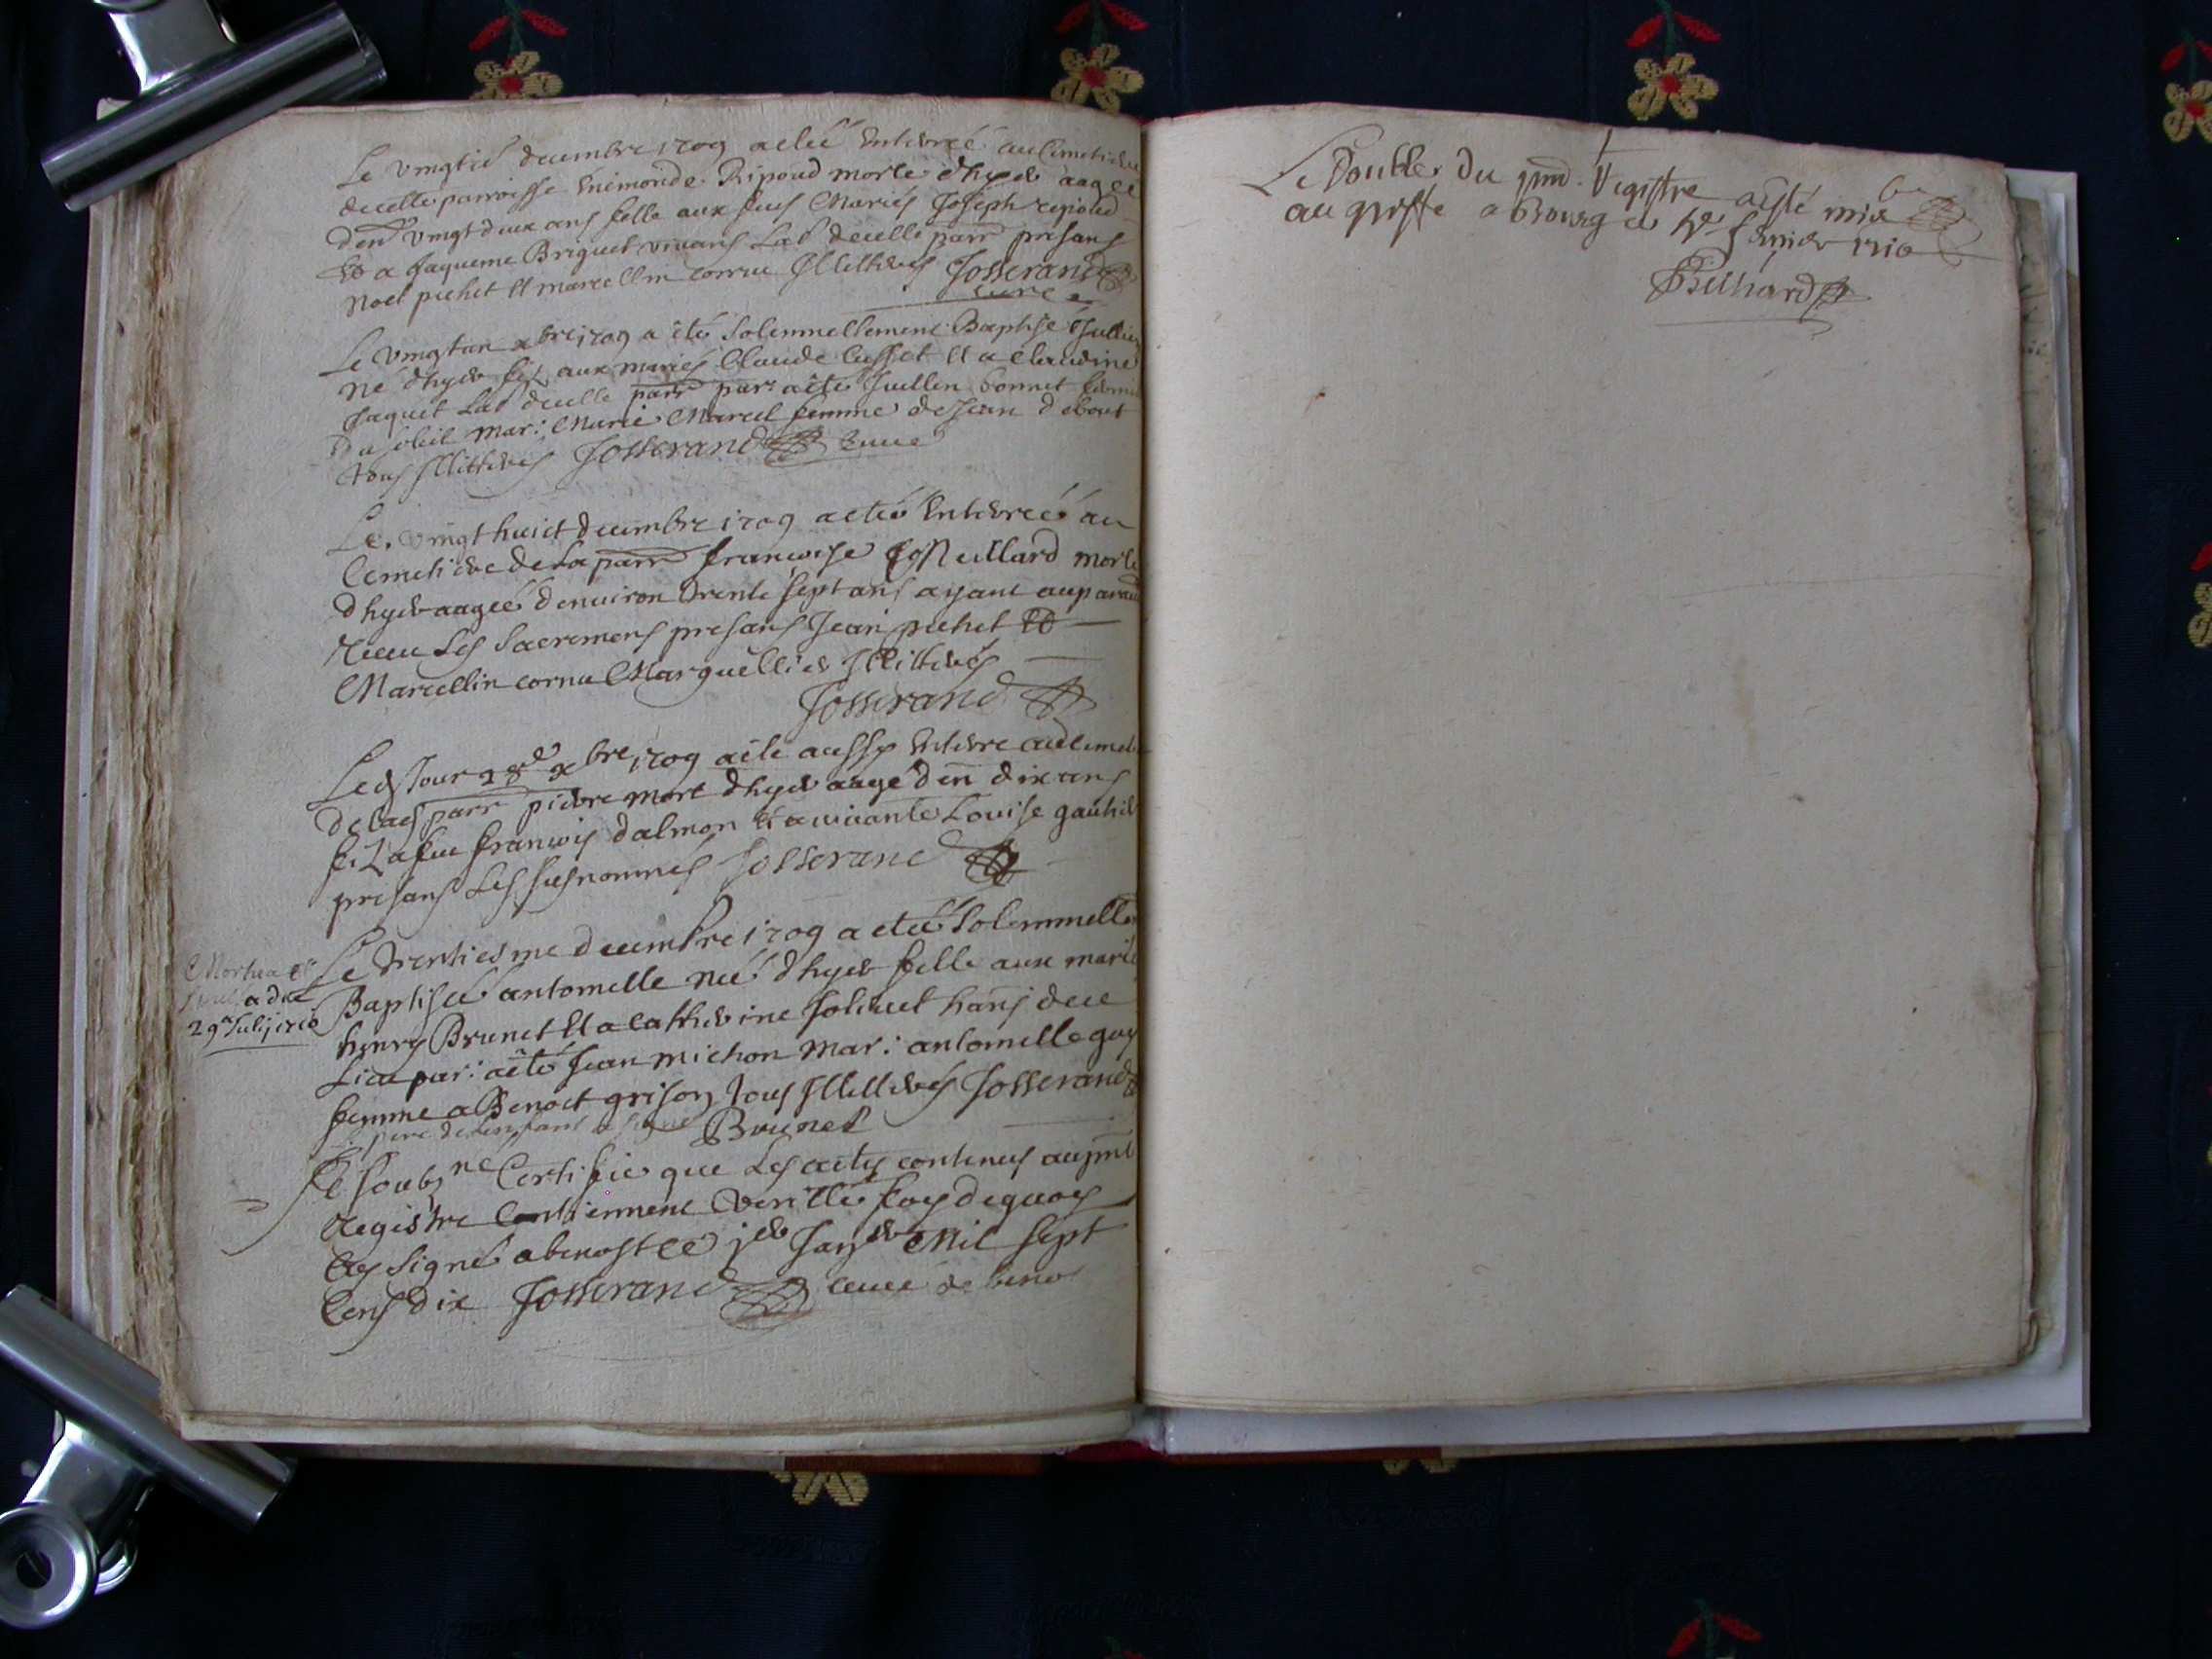 Le vingtie decembre 1709 a eté enterreé au Cimetiere
decelle parroisse Enimonde Ripoud morte d'hyer aageé
d'en vingt deux ans fille aux feus Mariés Joseph ripoud
et a Jaqueme Briguet vivans Lab decelle parr presans
Noel pichet et marcellin cornu Illitteres Josserand
curé
Le vingtun xbre 1709 a été Solemnellement Baptisé Jullien
né d'hyer fis aux mariés Claude Cusset et a claudine
Jaquet Lab decelle parr par: a eté Jullien bonnet
mar: Marie Marcel femme de Jean debout
tous Illitteres Josserand Curé
Le vingt huict decembre 1709 a eté Enterreé au
Cemetiere de la parr francoise morte
d'hyer aageé d'environ trente sept ans ayant auparavt
receu Les Sacremens presans Jean pichet et
Marcellin cornu Marguellier Illitteres
Josserand
Led Jour 28e xbre 1709 a été aussy enterre au cimet
de lad parr pierre mort d'hyer aagé d'en dix ans
fi. a feu francois dalmon et a vivante Louise gauthier
presans Les susnommés Josserand
Le trentiesme decembre 1709 a eteé Solemnelle
Baptiseé antoinette neé d'hyer fille aux mariés
henry Brunet et a catherine Jolivet hans dece
Lieu par: a eté Jean michon mar: antoinette guy
femme a Benoit grison tous Illitterés Josserand
Le pere de lenfant a signe Brunet
Mortua est
a die
29a Julij 1710
Je soubzne Certifie que Les actes contenus au pnt
Registre Contiennent verité foy dequoy
Jay Signé a benost ce jer Janer Mil sept
Cens dix Josserand curé de beno
Le Double Du pnt. Registre a esté mis
au greffe a Bourg ce fevrier 1710